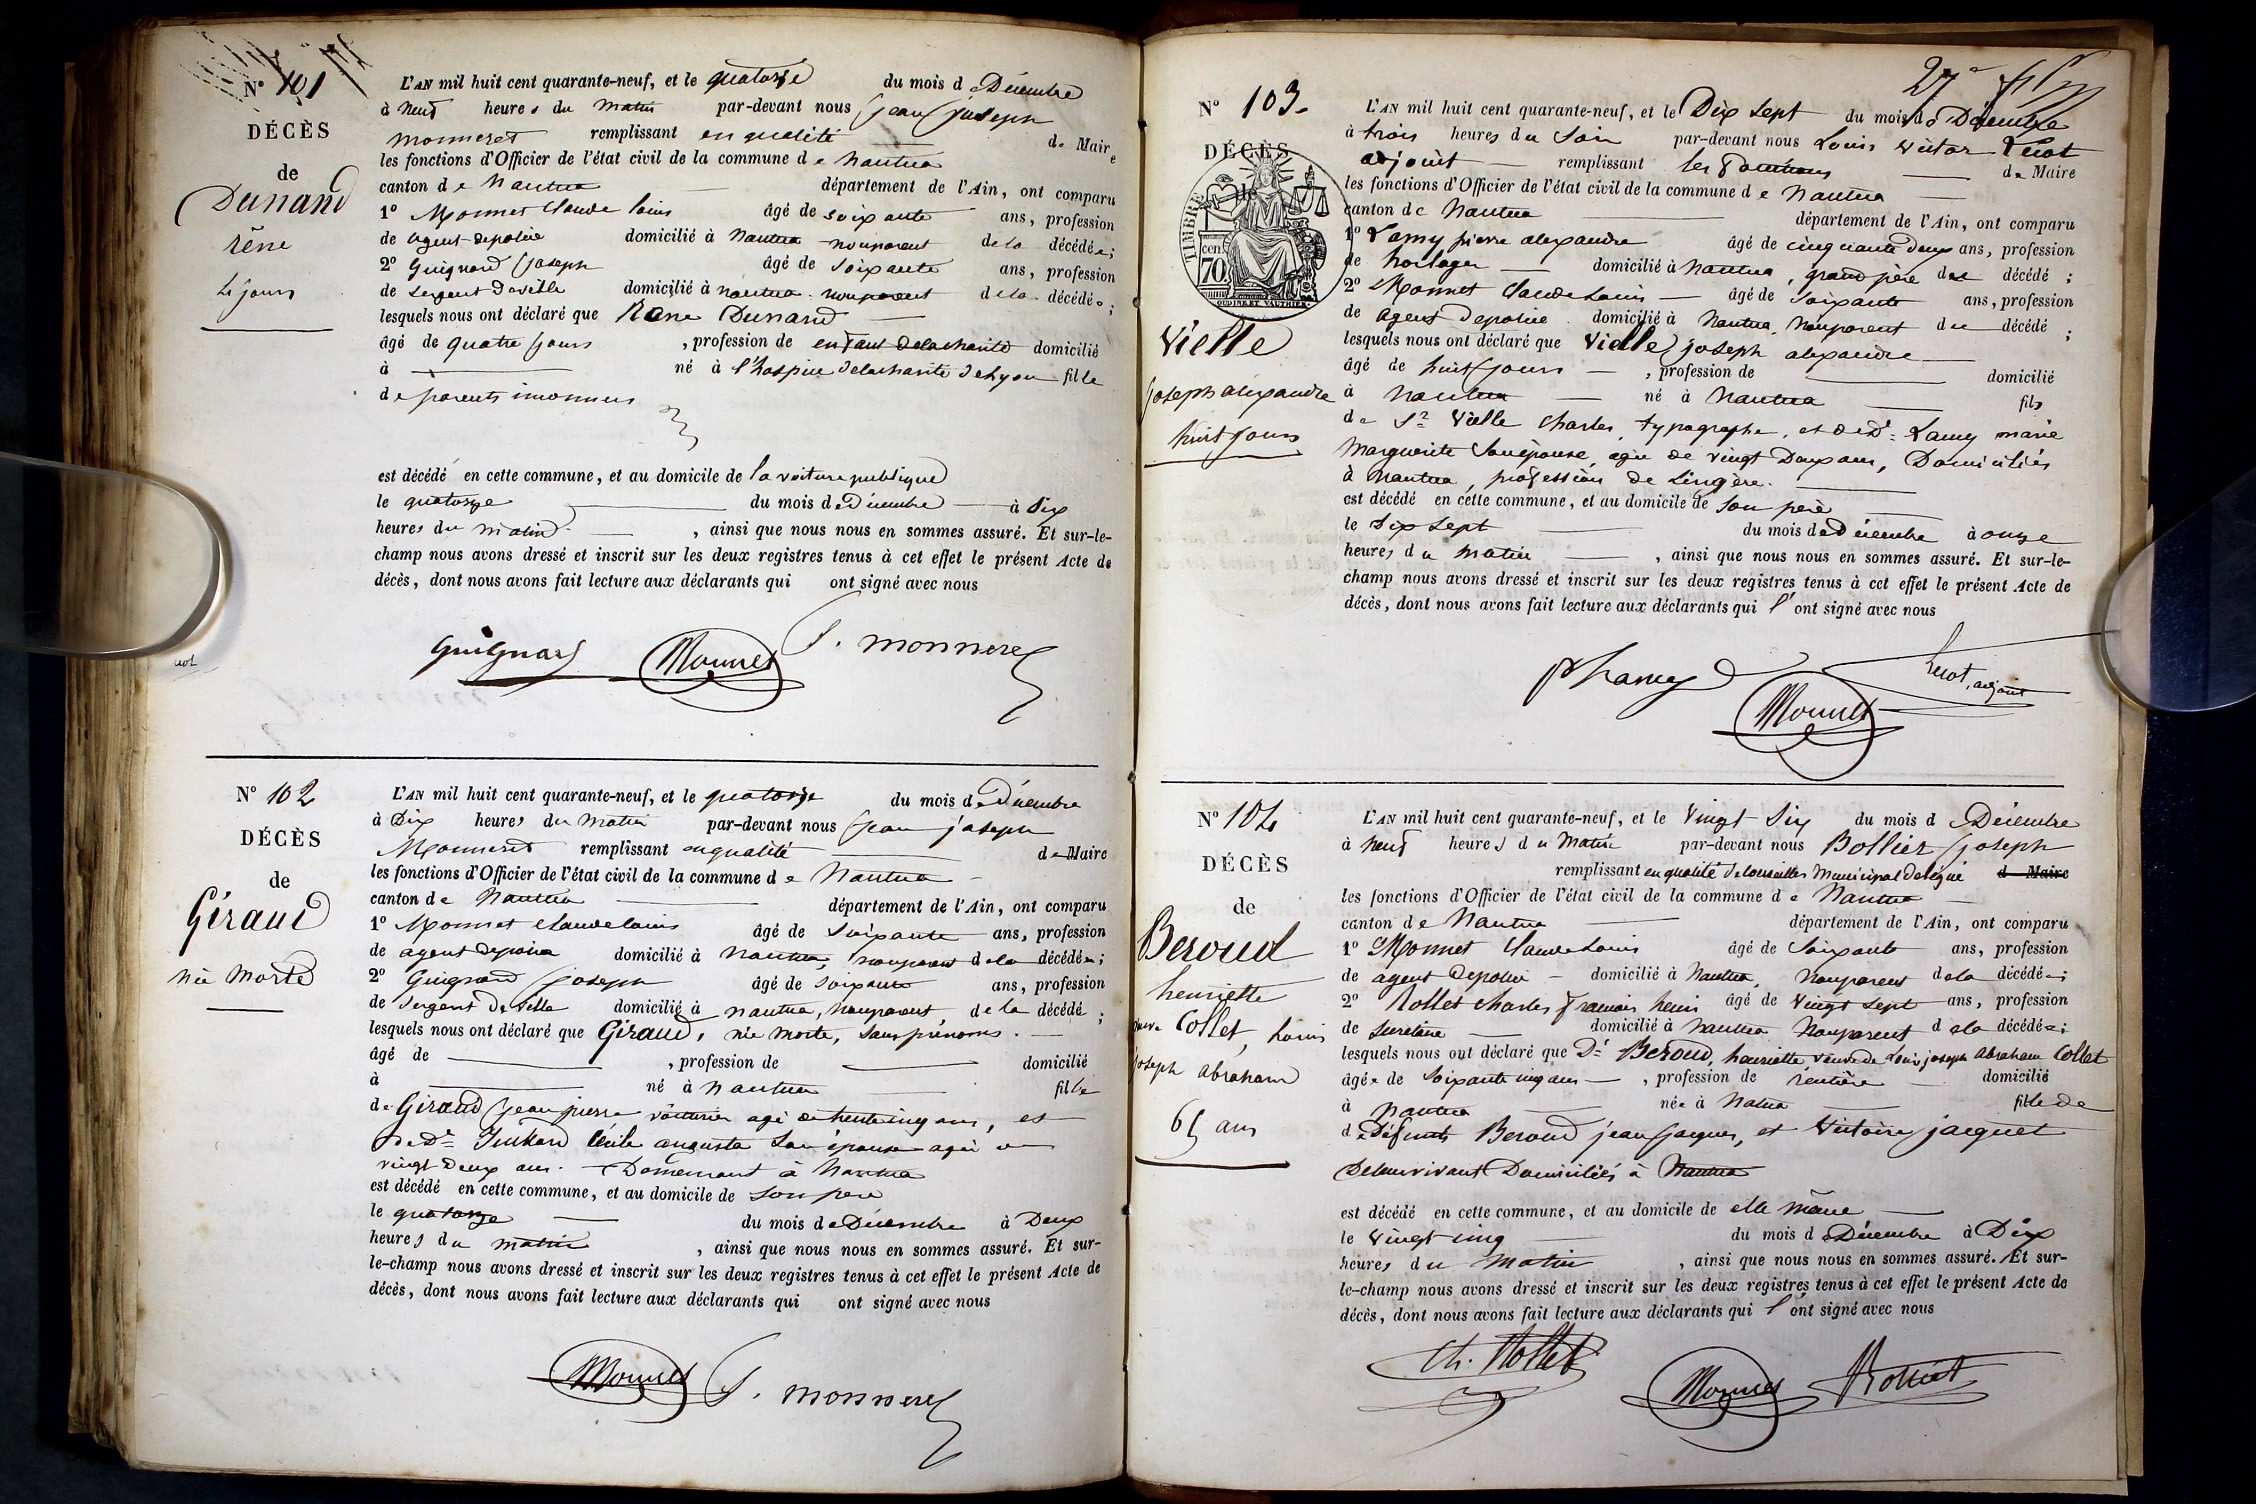 N° 101
DÉCÈS
de
Dunand
réne
4 jours
L'AN mil huit cent quarante-neuf, et le quatorze du mois de Décembre
à neuf heures du matin par-devant nous jean joseph
monneret remplissant en qualité de Maire
les fonctions d'Officier de l'état civil de la commune de Nantua
canton de Nantua département de l'Ain, ont comparu
1° Monnet Claude louis âgé de soixante ans, profession
de agent de police domicilié à Nantua nonparent de la décédée;
2° Guignard joseph âgé de soixante ans, profession
de sergent de ville domicilié à nantua nonparent de la décédée;
lesquels nous ont déclaré que Réne Dunand
âgé de quatre jours, profession de enfant de la charité domicilié
à né à l'hospice de la charité de Lyon fille
de parents inconnus
est décédé en cette commune, et au domicile de la voiture publique
le quatorze du mois de Décembre à six
heures du matin, ainsi que nous nous en sommes assuré. Et sur-le-
champ nous avons dressé et inscrit sur les deux registres tenus à cet effet le présent Acte de
décès, dont nous avons fait lecture aux déclarants qui ont signé avec nous
Guignard Monnet J. monneret
N° 102
DÉCÈS
de
Giraud
née Morte
L'AN mil huit cent quarante-neuf, et le quatorze du mois de Décembre
à Dix heures du Matin par-devant nous jean joseph
Monneret remplissant en qualité de Maire
les fonctions d'Officier de l'état civil de la commune de Nantua
canton de Nantua département de l'Ain, ont comparu
1° Monnet Claude louis âgé de soixante ans, profession
de agent de police domicilié à Nantua, nonparent de la décédée;
2° Guignard joseph âgé de soixante ans, profession
de sergent de ville domicilié à nantua, nonparent de la décédé;
lesquels nous ont déclaré que Giraud, née morte, sans prénoms.
âgé de , profession de domicilié
à né à Nantua fille
de Giraud jean pierre voiturier agé de trente cinq ans, et
de De Cécile augusta son épouse agée de
vingt deux ans. Demeurant à Nantua
est décédé en cette commune, et au domicile de son pere
le quatorze du mois de Décembre à Deux
heures du matin, ainsi que nous nous en sommes assuré. Et sur-
le-champ nous avons dressé et inscrit sur les deux registres tenus à cet effet le présent Acte de
décès, dont nous avons fait lecture aux déclarants qui ont signé avec nous
Monnet J. monneret
27e
N° 103.
DÉCÈS
de
TIMBRE
70 cen
OUDINÉ ET VAUTHIER
Vielle
joseph alexandre
huit jours
L'AN mil huit cent quarante-neuf, et le Dix sept du mois de Décembre
à trois heures du Soir par-devant nous Louis victor
adjoint remplissant les fonctions de Maire
les fonctions d'Officier de l'état civil de la commune de Nantua
canton de Nantua département de l'Ain, ont comparu
1° Lamy pierre alexandre âgé de cinquante deux ans, profession
de horloger domicilié à Nantua, grand père du décédé;
2° Monnet Claude Louis âgé de soixante ans, profession
de agent de police domicilié à Nantua, nonparent du décédé;
lesquels nous ont déclaré que Vielle joseph alexandre
âgé de huit jours, profession de domicilié
à Nantua né à Nantua fils
de Sr Vielle Charles, typographe, et de De Lamy marie
Marguerite son épouse, agée de vingt Deux ans, Domiciliés
à Nantua, profession de Lingère.
est décédé en cette commune, et au domicile de son père
le Dix sept du mois de Décembre à onze
heures du matin, ainsi que nous nous en sommes assuré. Et sur-le-
champ nous avons dressé et inscrit sur les deux registres tenus à cet effet le présent Acte de
décès, dont nous avons fait lecture aux déclarants qui l'ont signé avec nous
Lamy adjoint
Monnet
N° 104
DÉCÈS
de
Beroud
henriette
Collet, Louis
joseph abraham
65 ans
L'AN mil huit cent quarante-neuf, et le Vingt Six du mois de Décembre
à neuf heures du Matin par-devant nous Bollier joseph
remplissant en qualité de Conseiller Municipal délégué de Maire
les fonctions d'Officier de l'état civil de la commune de Nantua
canton de Nantua département de l'Ain, ont comparu
1° Monnet Claude Louis âgé de soixante ans, profession
de agent de police domicilié à Nantua, nonparent de la décédée;
2° Rollet Charles françois henri âgé de vingt sept ans, profession
de secretaire domicilié à Nantua nonparent de la décédée;
lesquels nous ont déclaré que De Beroud, henriette veuve de Louis joseph Abraham Collet
âgée de soixante cinq ans, profession de rentière domicilié
à Nantua née à Natua fille de
de Défunts Beroud jean jacques, et Victoire jacquet
De leur vivant Domiciliés à Nantua
est décédé en cette commune, et au domicile de elle même
le vingt cinq du mois de Décembre à Dix
heures du matin, ainsi que nous nous en sommes assuré. Et sur-
le-champ nous avons dressé et inscrit sur les deux registres tenus à cet effet le présent Acte de
décès, dont nous avons fait lecture aux déclarants qui l'ont signé avec nous
Ch. Rollet Monnet